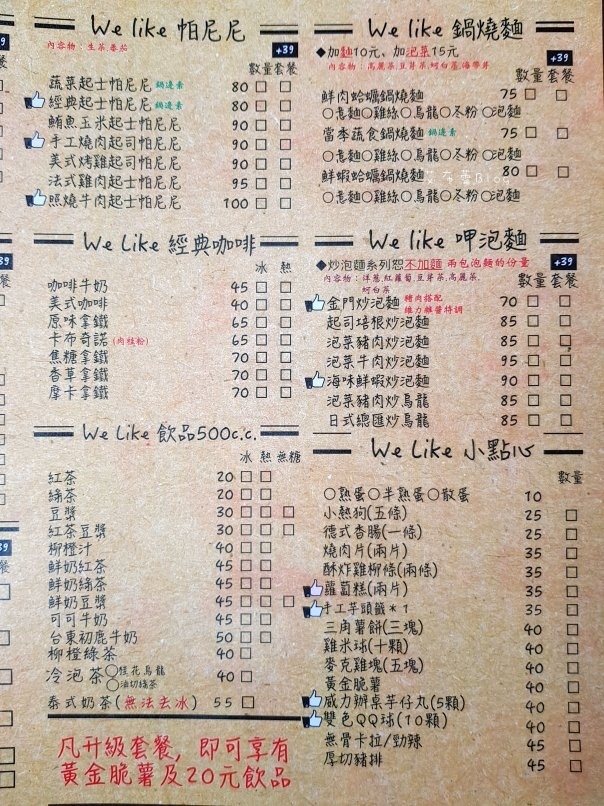 We like 帕尼尼
內容物：生菜.番茄
+39
數量 套餐
蔬菜起士帕尼尼 鍋邊素 80 □ □
經典起士帕尼尼 鍋邊素 80 □ □
鮪魚玉米起士帕尼尼 90 □ □
手工燒肉起司帕尼尼 90 □ □
美式烤雞起司帕尼尼 90 □ □
法式雞肉起士帕尼尼 95 □ □
照燒牛肉起士帕尼尼 100 □ □
We Like 經典咖啡
冰 熱
咖啡牛奶 45 □ □
美式咖啡 40 □ □
原味拿鐵 65 □ □
卡布奇諾(肉桂粉) 65 □ □
焦糖拿鐵 70 □ □
香草拿鐵 70 □ □
摩卡拿鐵 70 □ □
We Like 飲品500c.c.
冰 熱 無糖
紅茶 20 □ □
綠茶 20 □ □
豆漿 30 □ □ □
紅茶豆漿 30 □ □ □
柳橙汁 40 □ □
鮮奶紅茶 45 □ □
鮮奶綠茶 45 □ □
鮮奶豆漿 45 □ □ □
可可牛奶 45 □ □
台東初鹿牛奶 50 □ □
柳橙綠茶 40 □
冷泡茶 ○桂花烏龍 ○油切綠茶 40 □
泰式奶茶(無法去冰) 55 □
凡升級套餐，即可享有
黃金脆薯及20元飲品
We like 鍋燒麵
◆加麵10元、加泡菜15元
+39
內容物：高麗菜.豆芽菜.蚵白菜.海帶芽
數量 套餐
鮮肉蛤蠣鍋燒麵 75 □ □
○煮麵○雞絲○烏龍○冬粉○泡麵
當季蔬食鍋燒麵 鍋邊素 75 □ □
○煮麵○雞絲○烏龍○冬粉○泡麵
鮮蝦蛤蠣鍋燒麵 80 □ □
○煮麵○雞絲○烏龍○冬粉○泡麵
We like 呷泡麵
◆炒泡麵系列恕不加麵 兩包泡麵的份量
+39
內容物：洋蔥.紅蘿蔔.豆芽菜.高麗菜.
蚵白菜
數量 套餐
金門炒泡麵 豬肉搭配 維力雜醬特調 70 □ □
起司培根炒泡麵 85 □ □
泡菜豬肉炒泡麵 85 □ □
泡菜牛肉炒泡麵 95 □ □
海味鮮蝦炒泡麵 90 □ □
泡菜豬肉炒烏龍 85 □ □
日式總匯炒烏龍 85 □ □
We Like 小點心
數量
○熟蛋○半熟蛋○散蛋 10
小熱狗(五條) 25 □
德式香腸(一條) 25 □
燒肉片(兩片) 35 □
酥炸雞柳條(兩條) 35 □
蘿蔔糕(兩片) 35 □
手工芋頭籤*1 35 □
三角薯餅(三塊) 40 □
雞米球(十顆) 40 □
麥克雞塊(五塊) 40 □
黃金脆薯 40 □
威力辦桌芋仔丸(5顆) 40 □
雙色QQ球(10顆) 40 □
無骨卡拉/勁辣 45 □
厚切豬排 45 □